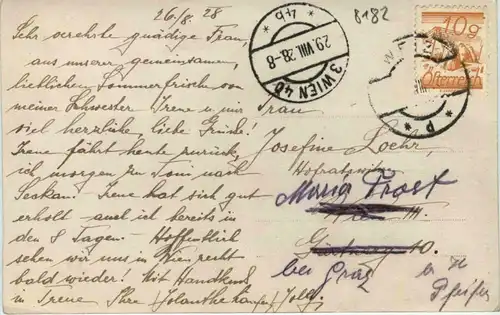 26./8. 28
Sehr verehrte gnädige Frau,
aus unserer gemeinsamen,
lieblichen Sommerfrische von
meiner Schwester Irene u. mir
viel herzliche, liebe Grüße!
Irene fährt heute zurück,
ich morgen zu Toni nach
Seckau. Irene hat sich gut
erholt auch ich bereits in
den 8 Tagen. Hoffentlich
sehen wir uns in Wien recht
bald wieder! Mit Handkuss
Irene Ihre Jolanthe
8182
4b
29.VIII.28.-8
3 WIEN 40
10 g
Österreich
Frau
Josefine Loehr,
Hofratswitwe
Maria Trost
Wien III.
10.
bei Graz